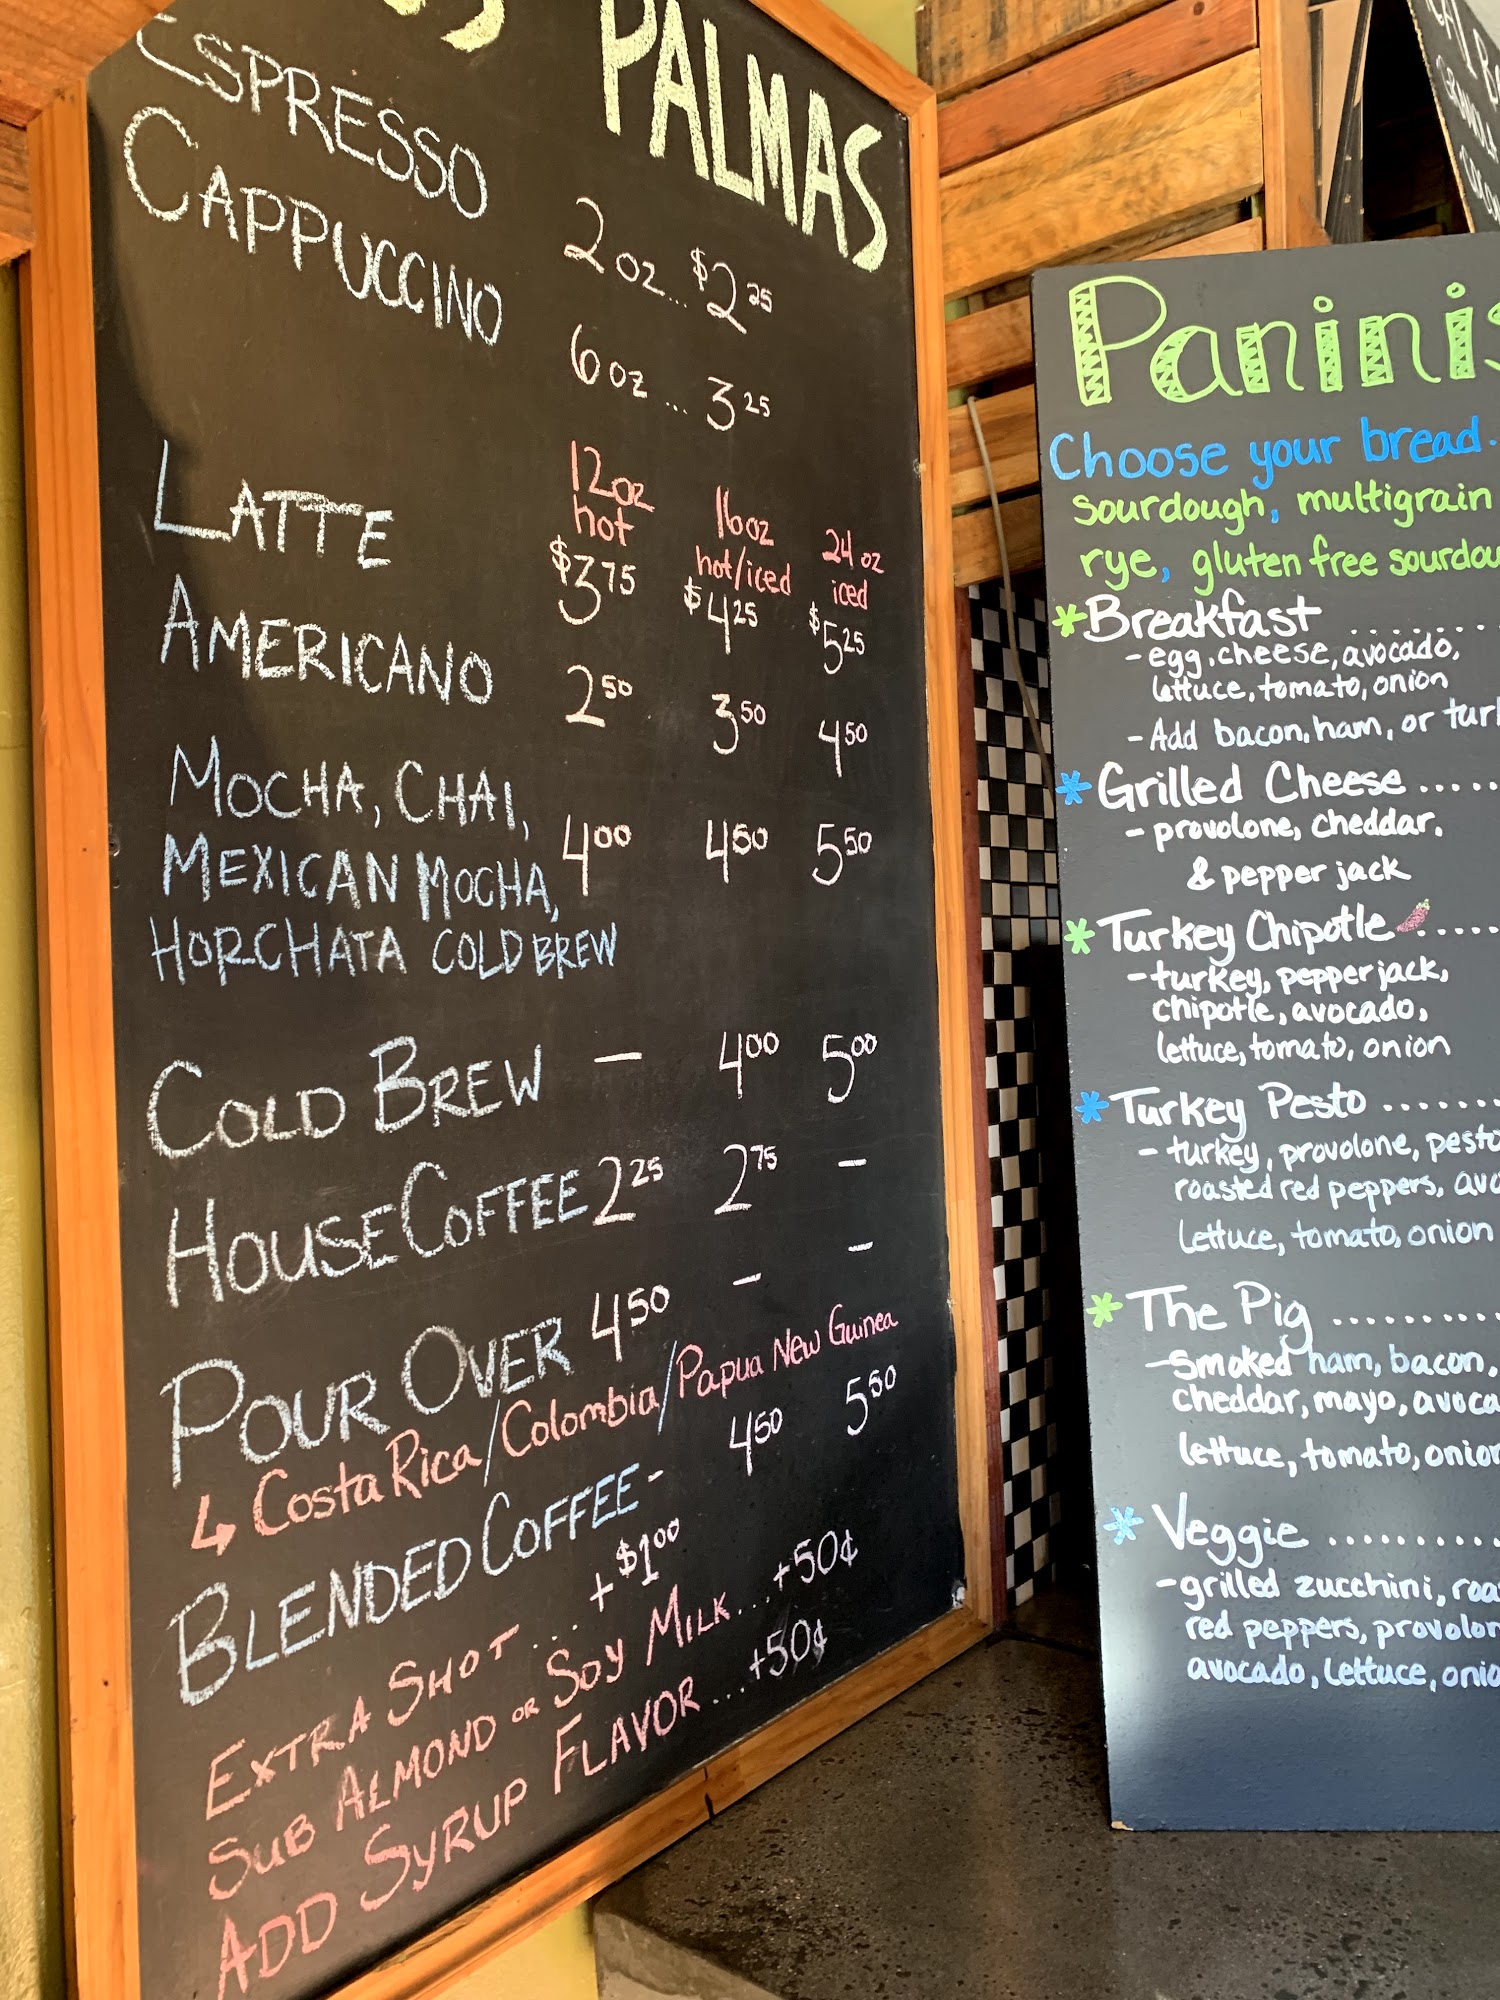 PALMAS
ESPRESSO 2 oz... $2 25
CAPPUCCINO 6 oz ... 3 25
12 oz hot 16 oz hot/iced 24 oz iced
LATTE $3 75 $4 25 $5 25
AMERICANO 2 50 3 50 4 50
MOCHA, CHAI,
MEXICAN MOCHA, 4 00 4 50 5 50
HORCHATA COLD BREW
COLD BREW — 4 00 5 00
HOUSE COFFEE 2 25 2 75 —
POUR OVER 4 50 — —
↳ Costa Rica/Colombia/Papua New Guinea
BLENDED COFFEE - 4 50 5 50
EXTRA SHOT ... +$1 00
SUB ALMOND OR SOY MILK... +50¢
ADD SYRUP FLAVOR ... +50¢
Paninis
Choose your bread.
sourdough, multigrain
rye, gluten free
*Breakfast .......
- egg, cheese, avocado,
lettuce, tomato, onion
- Add bacon, ham, or
*Grilled Cheese .....
- provolone, cheddar,
& pepper jack
*Turkey Chipotle .....
- turkey, pepper jack,
chipotle, avocado,
lettuce, tomato, onion
*Turkey Pesto .......
- turkey, provolone, pesto
roasted red peppers,
lettuce, tomato, onion
*The Pig .........
- smoked ham, bacon,
cheddar, mayo,
lettuce, tomato,
*Veggie .........
- grilled zucchini,
red peppers,
avocado, lettuce,